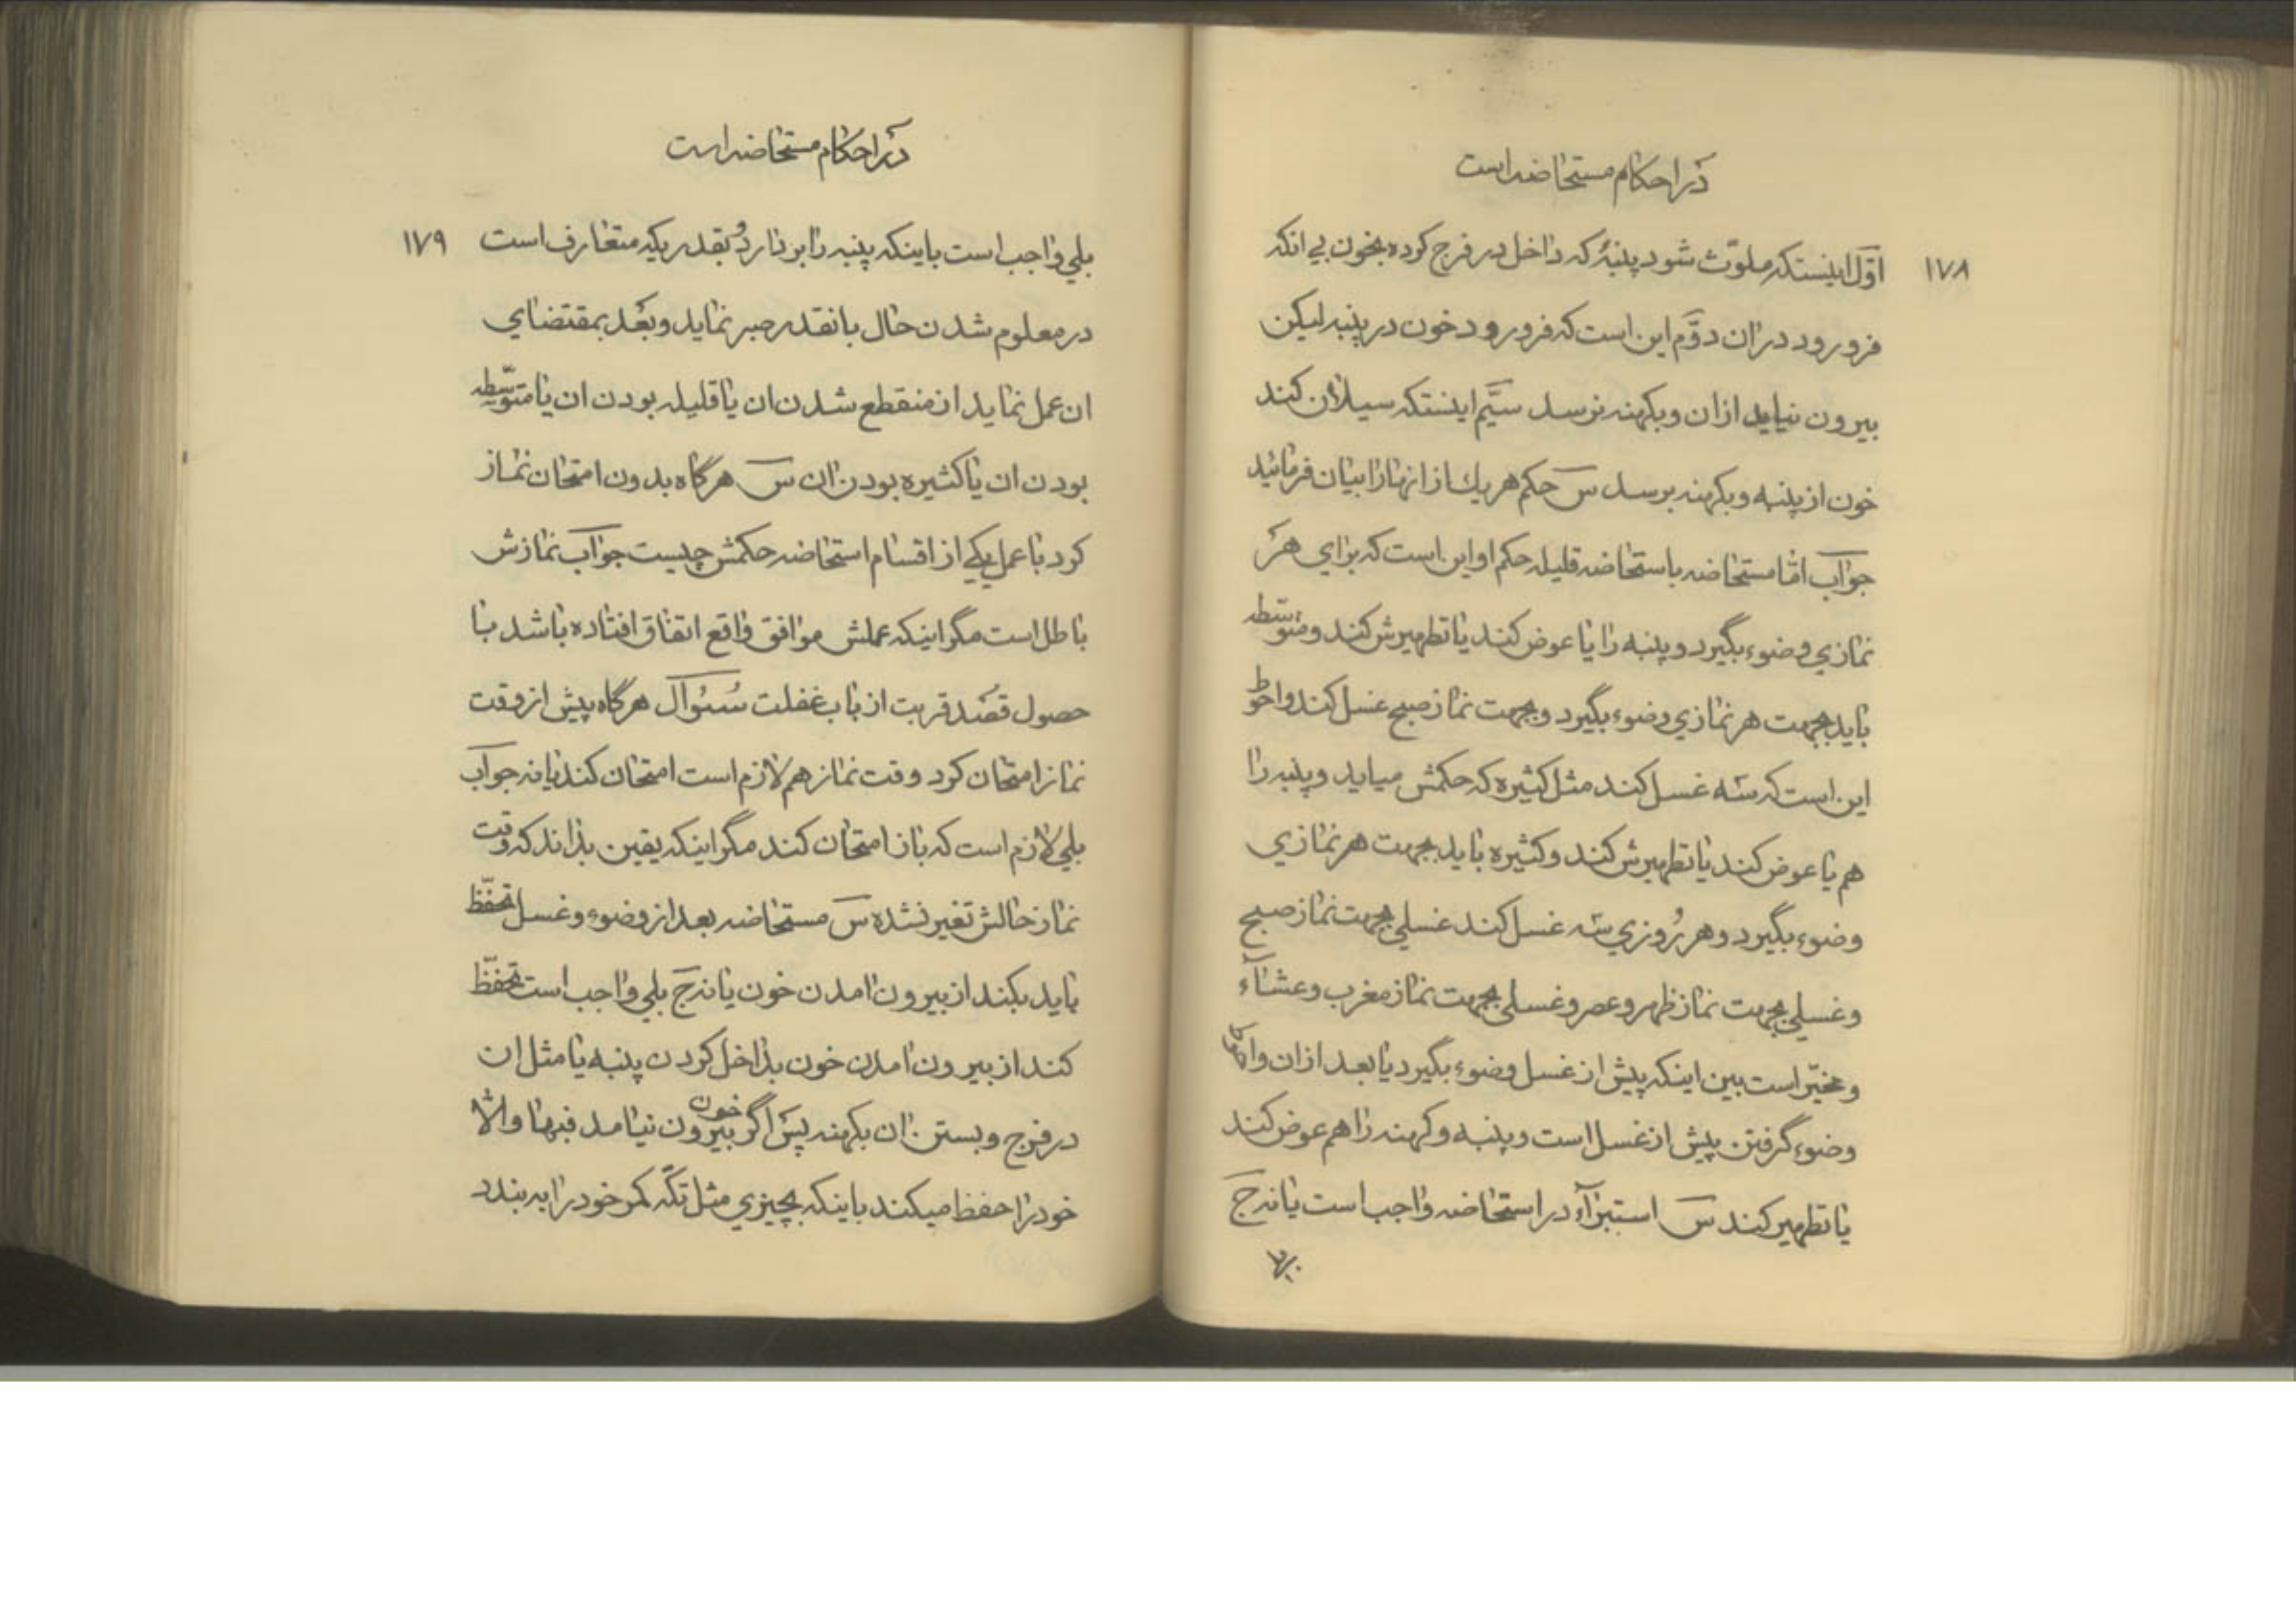 در احکام مستحاضه است
۱۷۸
اوّل اینستکه ملوّث شود پنبهٔ که داخل در فرج کرده بخون بی انکه
فرو رود در ان دوّم این است که فرو رود خون در پنبه لیکن
بیرون نیاید از ان و بکهنه نرسد سیَّم اینستکه سیلان کند
خون از پنبه و بکهنه برسد س حکم هر یك از انها را بیان فرمائید
جواب امّا مستحاضه باستحاضه قلیله حکم او این است که برای هر
نمازی وضوء بگیرد و پنبه را یا عوض کند یا تطهیرش کند و متوسّطه
باید بجهت هر نمازی وضوء بگیرد و بجهت نماز صبح غسل کند و احوط
این است که سه غسل کند مثل کثیره که حکمش میاید و پنبه را
هم یا عوض کند یا تطهیرش کند و کثیره باید بجهت هر نمازی
وضوء بگیرد و هر رُوزی سه غسل کند غسلی بجهت نماز صبح
و غسلی بجهت نماز ظهر و عصر و غسلی بجهت نماز مغرب و عشآء
و مخیّر است بین اینکه پیش از غسل وضوء بگیرد یا بعد از ان
وضوء گرفتن پیش از غسل است و پنبه و کهنه را هم عوض کند
یا تطهیر کند س استبرآء در استحاضه واجب است یا نه ج
در احکام مستحاضه است
۱۷۹
بلی واجب است باینکه پنبه را بر دارد بقدریکه متعارف است
در معلوم شدن حال بانقدر صبر نماید و بعُد بمقتضای
ان عمل نماید از منقطع شدن ان یا قلیله بودن ان یا متوسّطه
بودن ان یا کثیره بودن ان س هرگاه بدون امتحان نماز
کرد با عمل یکی از اقسام استحاضه حکمش چیست جواب نمازش
باطل است مگر اینکه عملش موافق واقع اتفاق افتاده باشد با
حصول قصد قربت از باب غفلت سُئوال هرگاه پیش از وقت
نماز امتحان کرد وقت نماز هم لازم است امتحان کند یا نه جواب
بلی لازم است که باز امتحان کند مگر اینکه یقین بداند که وقت
نماز حالش تغیر نشده س مستحاضه بعد از وضوء و غسل تحفّظ
باید بکند از بیرون امدن خون یا نه ج بلی واجب است تحفّظ
کند از بیرون امدن خون بداخل کردن پنبه یا مثل ان
در فرج و بستن ان بکهنه پس اگر خون بیرون نیامد فبها والّا
خود را حفظ میکند باینکه بچیزی مثل تکّه کمر خود را به بندد